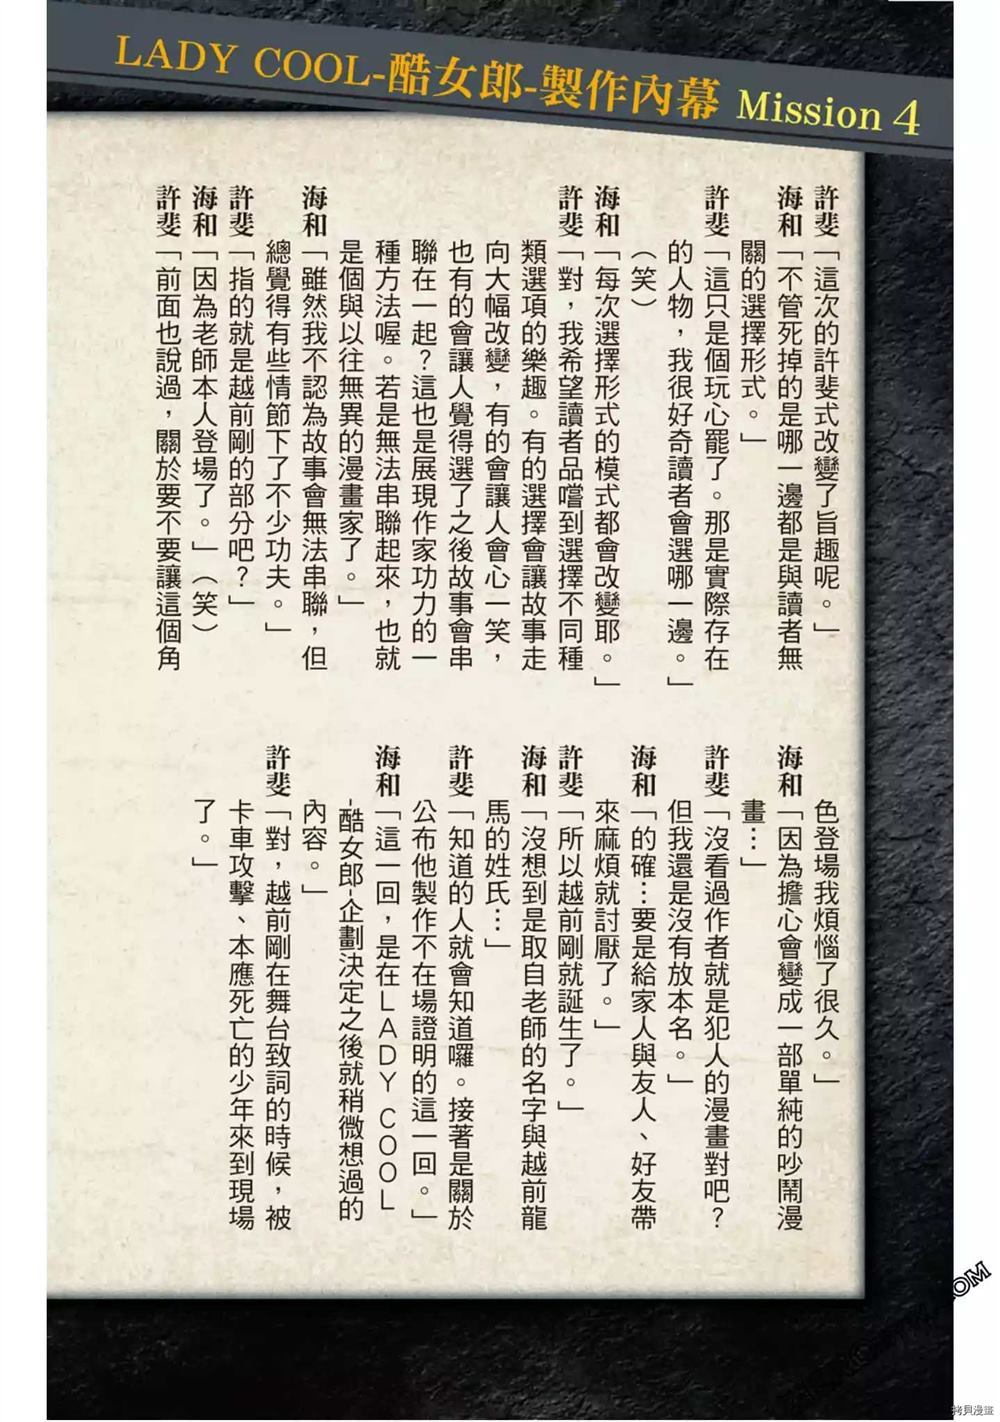 LADY COOL-酷女郎-製作內幕 Mission 4
許斐「這次的許斐式改變了旨趣呢。」
海和「不管死掉的是哪一邊都是與讀者無
關的選擇形式。」
許斐「這只是個玩心罷了。那是實際存在
的人物，我很好奇讀者會選哪一邊。」
（笑）
海和「每次選擇形式的模式都會改變耶。」
許斐「對，我希望讀者品嚐到選擇不同種
類選項的樂趣。有的選擇會讓故事走
向大幅改變，有的會讓人會心一笑，
也有的會讓人覺得選了之後故事會串
聯在一起？這也是展現作家功力的一
種方法喔。若是無法串聯起來，也就
是個與以往無異的漫畫家了。」
海和「雖然我不認為故事會無法串聯，但
總覺得有些情節下了不少功夫。」
許斐「指的就是越前剛的部分吧？」
海和「因為老師本人登場了。」（笑）
許斐「前面也說過，關於要不要讓這個角
色登場我煩惱了很久。」
海和「因為擔心會變成一部單純的吵鬧漫
畫…」
許斐「沒看過作者就是犯人的漫畫對吧？
但我還是沒有放本名。」
海和「的確…要是給家人與友人、好友帶
來麻煩就討厭了。」
許斐「所以越前剛就誕生了。」
海和「沒想到是取自老師的名字與越前龍
馬的姓氏…」
許斐「知道的人就會知道囉。接著是關於
公布他製作不在場證明的這一回。」
海和「這一回，是在LADY COOL
-酷女郎-企劃決定之後就稍微想過的
內容。」
許斐「對，越前剛在舞台致詞的時候，被
卡車攻擊、本應死亡的少年來到現場
了。」
拷貝漫畫